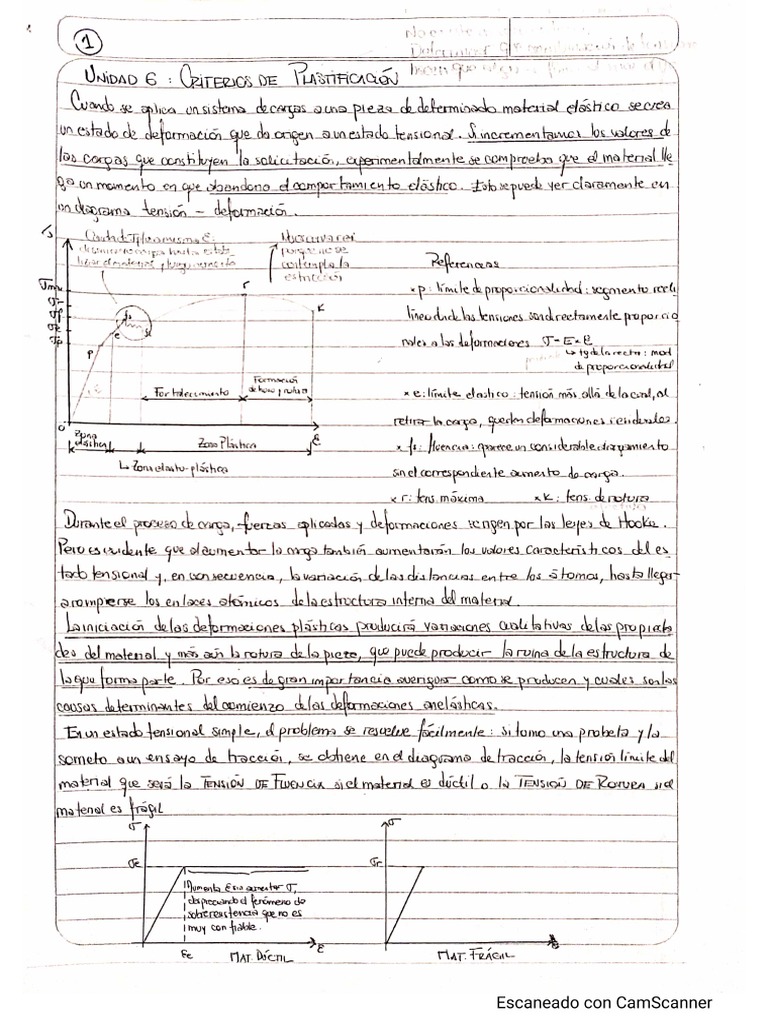 1
UNIDAD 6: CRITERIOS DE PLASTIFICACIÓN
Cuando se aplica un sistema de cargas a una pieza de determinado material elástico se crea
un estado de deformación que da origen a un estado tensional. Si incrementamos los valores de
las cargas que constituyen la solicitación, experimentalmente se comprueba que el material lle
ga un momento en que abandona el comportamiento elástico. Esto se puede ver claramente en
un diagrama tensión - deformación.
Referencias
* p: límite de proporcionalidad: segmento recti
líneo donde las tensiones son directamente proporcio
nales a las deformaciones σ = E * ε
↳ tg de la recta: mod
de proporcionalidad
* e: límite elastico: tensión más allá de la cual, al
retirar la carga, quedan deformaciones residuales.
* fs: fluencia: aparece un considerable alargamiento
sin el correspondiente aumento de carga.
* r: tens. máxima * k: tens. de rotura
r
K
P
e
Fortalecimiento
Formación
de cuello y rotura
O
ε
Zona
elástica
Zona Plástica
↳ Zona elasto-plástica
Durante el proceso de carga, fuerzas aplicadas y deformaciones se rigen por las leyes de Hooke.
Pero es evidente que al aumentar la carga también aumentarán los valores característicos del es
tado tensional y, en consecuencia, la variación de las distancias entre los átomos, hasta llegar
a romperse los enlaces atómicos de la estructura interna del material.
La iniciación de las deformaciones plásticas producirá variaciones cualitativas de las propieda
des del material y más aún la rotura de la pieza, que puede producir la ruina de la estructura de
la que forma parte. Por eso es de gran importancia averiguar como se producen y cuales son las
causas determinantes del comienzo de las deformaciones anelásticas.
En un estado tensional simple, el problema se resuelve fácilmente: si tomo una probeta y la
someto a un ensayo de tracción, se obtiene en el diagrama de tracción, la tensión límite del
material que será la TENSIÓN DE FLUENCIA si el material es dúctil o la TENSIÓN DE ROTURA si el
material es frágil
σ
σe
Aumenta ε sin aumentar σ,
despreciando el fenómeno de
sobreresistencia que no es
muy confiable.
εe
ε
MAT. DÚCTIL
σ
σr
ε
MAT. FRÁGIL
Escaneado con CamScanner